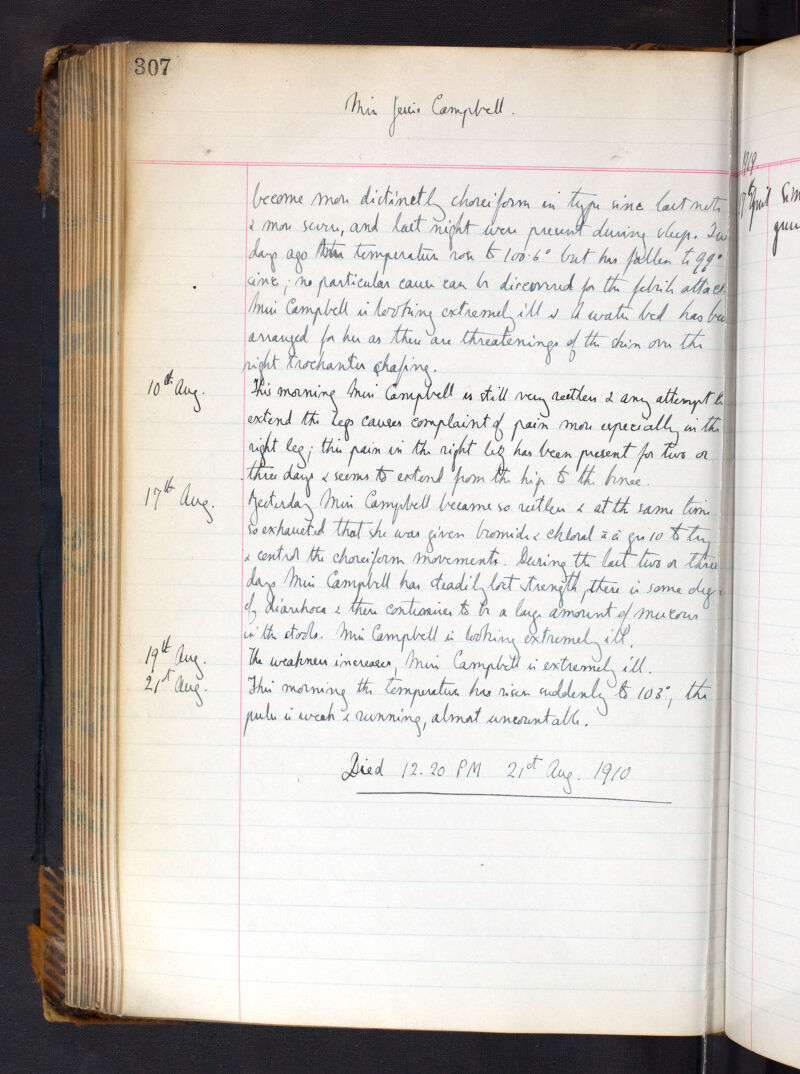 307
Miss Jessie Campbell.
become more distinctly choreiform in type since last note
& more severe, and last night were present during sleep. Two
days ago temperature rose to 100.6° but has fallen to 99°
since; no particular cause can be discovered for the febrile attack
Miss Campbell is looking extremely ill & A water bed has been
arranged for her as there are threatenings of the skin over the
right trochanter chafing.
10th Aug. This morning Miss Campbell is still very restless & any attempt to
extend the legs causes complaint of pain more especially in the
right leg; this pain in the right leg has been present for two or
three days & seems to extend from the hip to the knee.
17th Aug. Yesterday Miss Campbell became so restless & at the same time
so exhausted that she was given bromide & chloral āā grs 10 to try
& control the choreiform movements. During the last two or three
days Miss Campbell has steadily lost strength, there is some deg
of diarrhoea & there continues to be a large amount of mucous
in the stools. Miss Campbell is looking extremely ill.
19th Aug. The weakness increases, Miss Campbell is extremely ill.
21st Aug. This morning the temperature has risen suddenly to 103°, the
pulse is weak & running, almost uncountable.
Died 12.20 PM 21st Aug. 1910
1919
17th April Sin